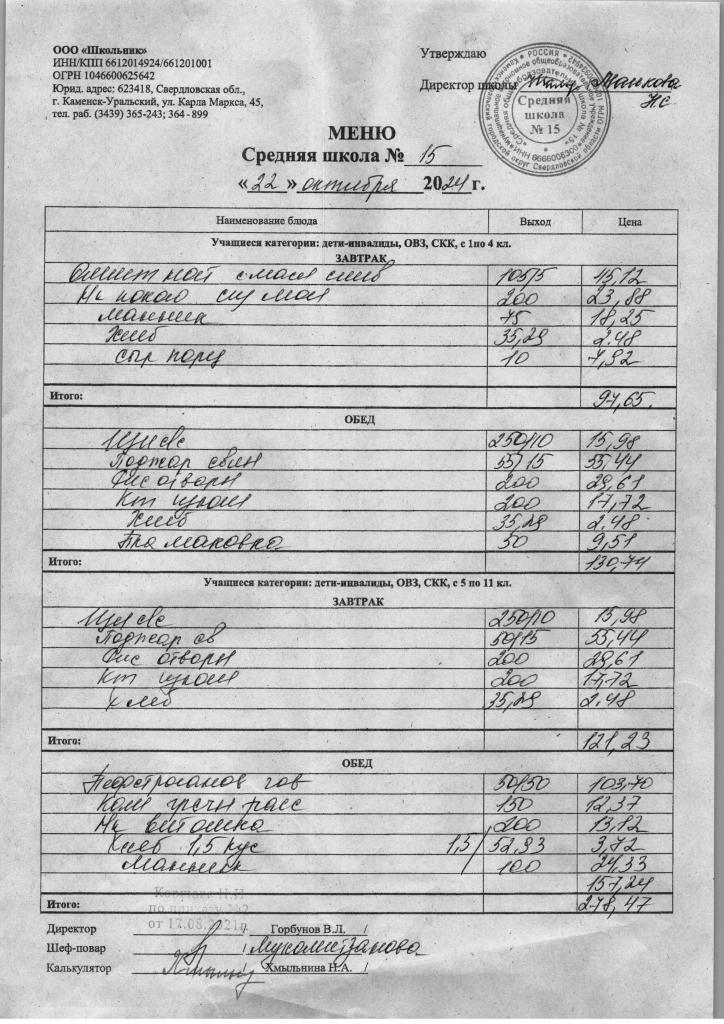 ООО «Школьник»
ИНН/КПП 6612014924/661201001
ОГРН 1046600625642
Юрид. адрес: 623418, Свердловская обл.,
г. Каменск-Уральский, ул. Карла Маркса, 45,
тел. раб. (3439) 365-243; 364 - 899
Утверждаю
Директор школы
Средняя школа № 15
МЕНЮ
Средняя школа № 15
«22» октября 2024 г.
Наименование блюда Выход Цена
Учащиеся категории: дети-инвалиды, ОВЗ, СКК, с 1по 4 кл.
ЗАВТРАК
105/5 45,12
200 23,88
Манник 75 18,25
Хлеб 35,29 2.48
Сыр порц 10 7,92
Итого: 97,65.
ОБЕД
Щи св 250/10 15,98
Поджар свин 55/15 55,44
Рис отварн 200 29,61
200 17,72
Хлеб 35,29 2.48
Пря маковка 50 9,51
Итого: 130,74
Учащиеся категории: дети-инвалиды, ОВЗ, СКК, с 5 по 11 кл.
ЗАВТРАК
Щи св 250/10 15,98
Поджар св 50/15 55,44
Рис отварн 200 29,61
200 17,72
хлеб 35,29 2.48
Итого: 121,23
ОБЕД
Бефстроганов гов 50/50 103,70
греч расс 150 12,37
На витошка 200 13,12
Хлеб 1,5 кус 1,5/ 52,93 3,72
Манник 100 24,33
157,24
Итого: 278,47
по приказу №2
от 17.08.2021г.
Директор / Горбунов В.Л. /
Шеф-повар / Мухометзанова
Калькулятор / Хмыльнина Н.А. /